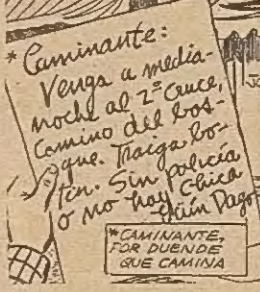 *Caminante:
Venga a media-
noche al 2º Cruce,
Camino del bos-
que. Traiga bo-
tín. Sin policía
o no hay chica
*CAMINANTE,
POR DUENDE
QUE CAMINA